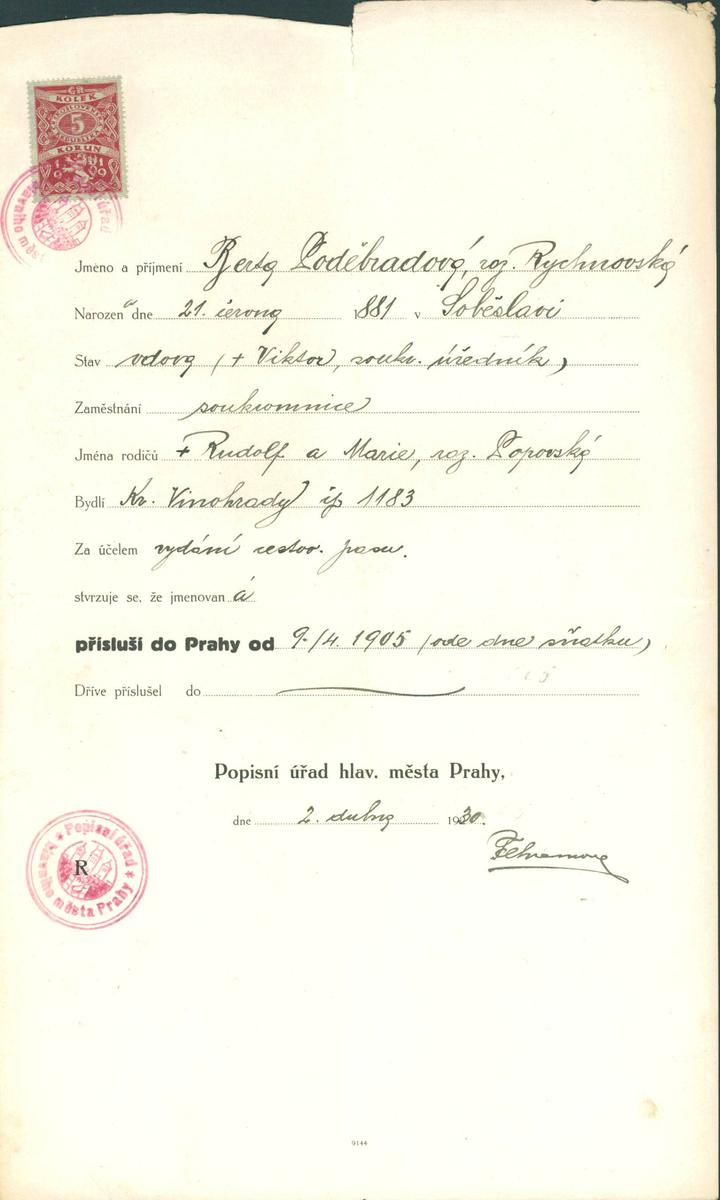 KOLEK
5
KORUN
1919
Jmeno a příjmení Berta Poděbradová, roz. Rychnovská
Narozena dne 21. června 1881 v Soběslavi
Stav vdova (+ Viktor, soukr. úředník)
Zaměstnání soukromnice
Jména rodičů + Rudolf a Marie, roz. Popovská
Bydlí Kr. Vinohrady čp 1183
Za účelem vydání cestov. pasu.
stvrzuje se, že jmenovan á
přísluší do Prahy od 9./4. 1905 (ode dne sňatku)
Dříve příslušel do
Popisní úřad hlav. města Prahy,
dne 2. dubna 1930.
Popisní úřad hlavního města Prahy
R
9144